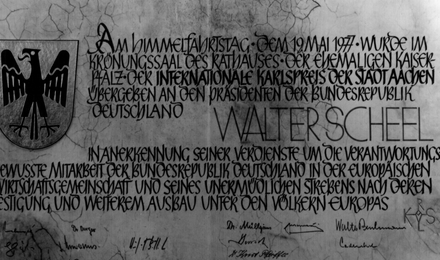 Am Himmelfahrtstag · dem 19 Mai 1977 · wurde im
Krönungssaal des Rathauses · der ehemaligen Kaiser-
pfalz · der INTERNATIONALE KARLSPREIS DER STADT AACHEN
übergeben an den Präsidenten der Bundesrepublik
Deutschland WALTER SCHEEL
in Anerkennung seiner Verdienste um die verantwortungs
ewusste Mitarbeit der Bundesrepublik Deutschland in der Europäischen
Wirtschaftsgemeinschaft und seines unermüdlichen Strebens nach deren
estigung und weiterem Ausbau unter den Völkern Europas